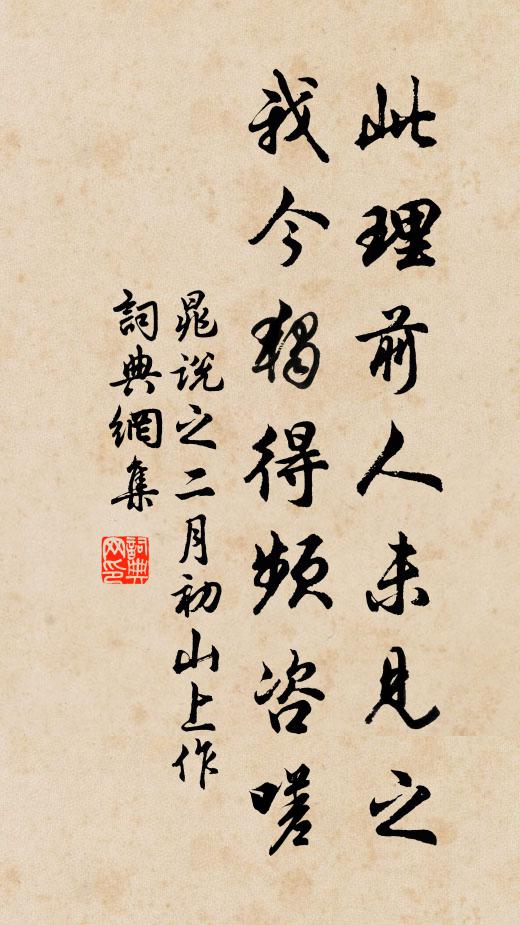 此理前人未見之
我今獨得頻咨嗟
晁說之二月初山上作
詞典網集
詞典網印